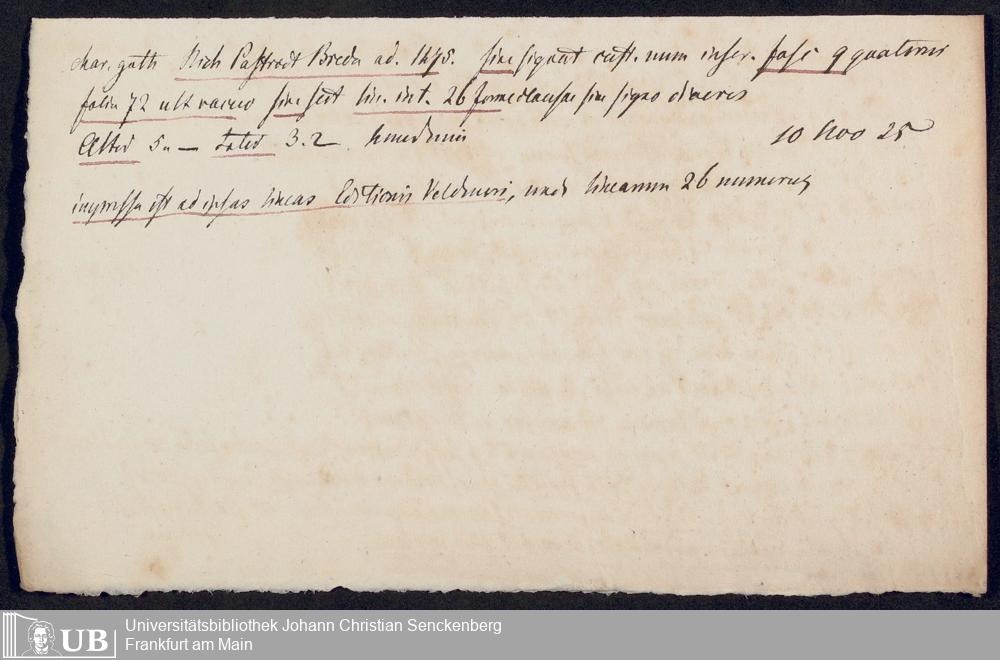 char. goth Rich Paffroet Breda ad. 1475. sine signat cust. num inser. fasc 9 quaternis
folia 72 ult vacuo sine sect lin. int. 26 forme clausae sine signo diaeres
Altid 5" — Latid 3. 2
10 Nov 25
impressa est ad ipsas lineas Editionis Veldneri, unde linearum 26 numerus
UB
Universitätsbibliothek Johann Christian Senckenberg
Frankfurt am Main